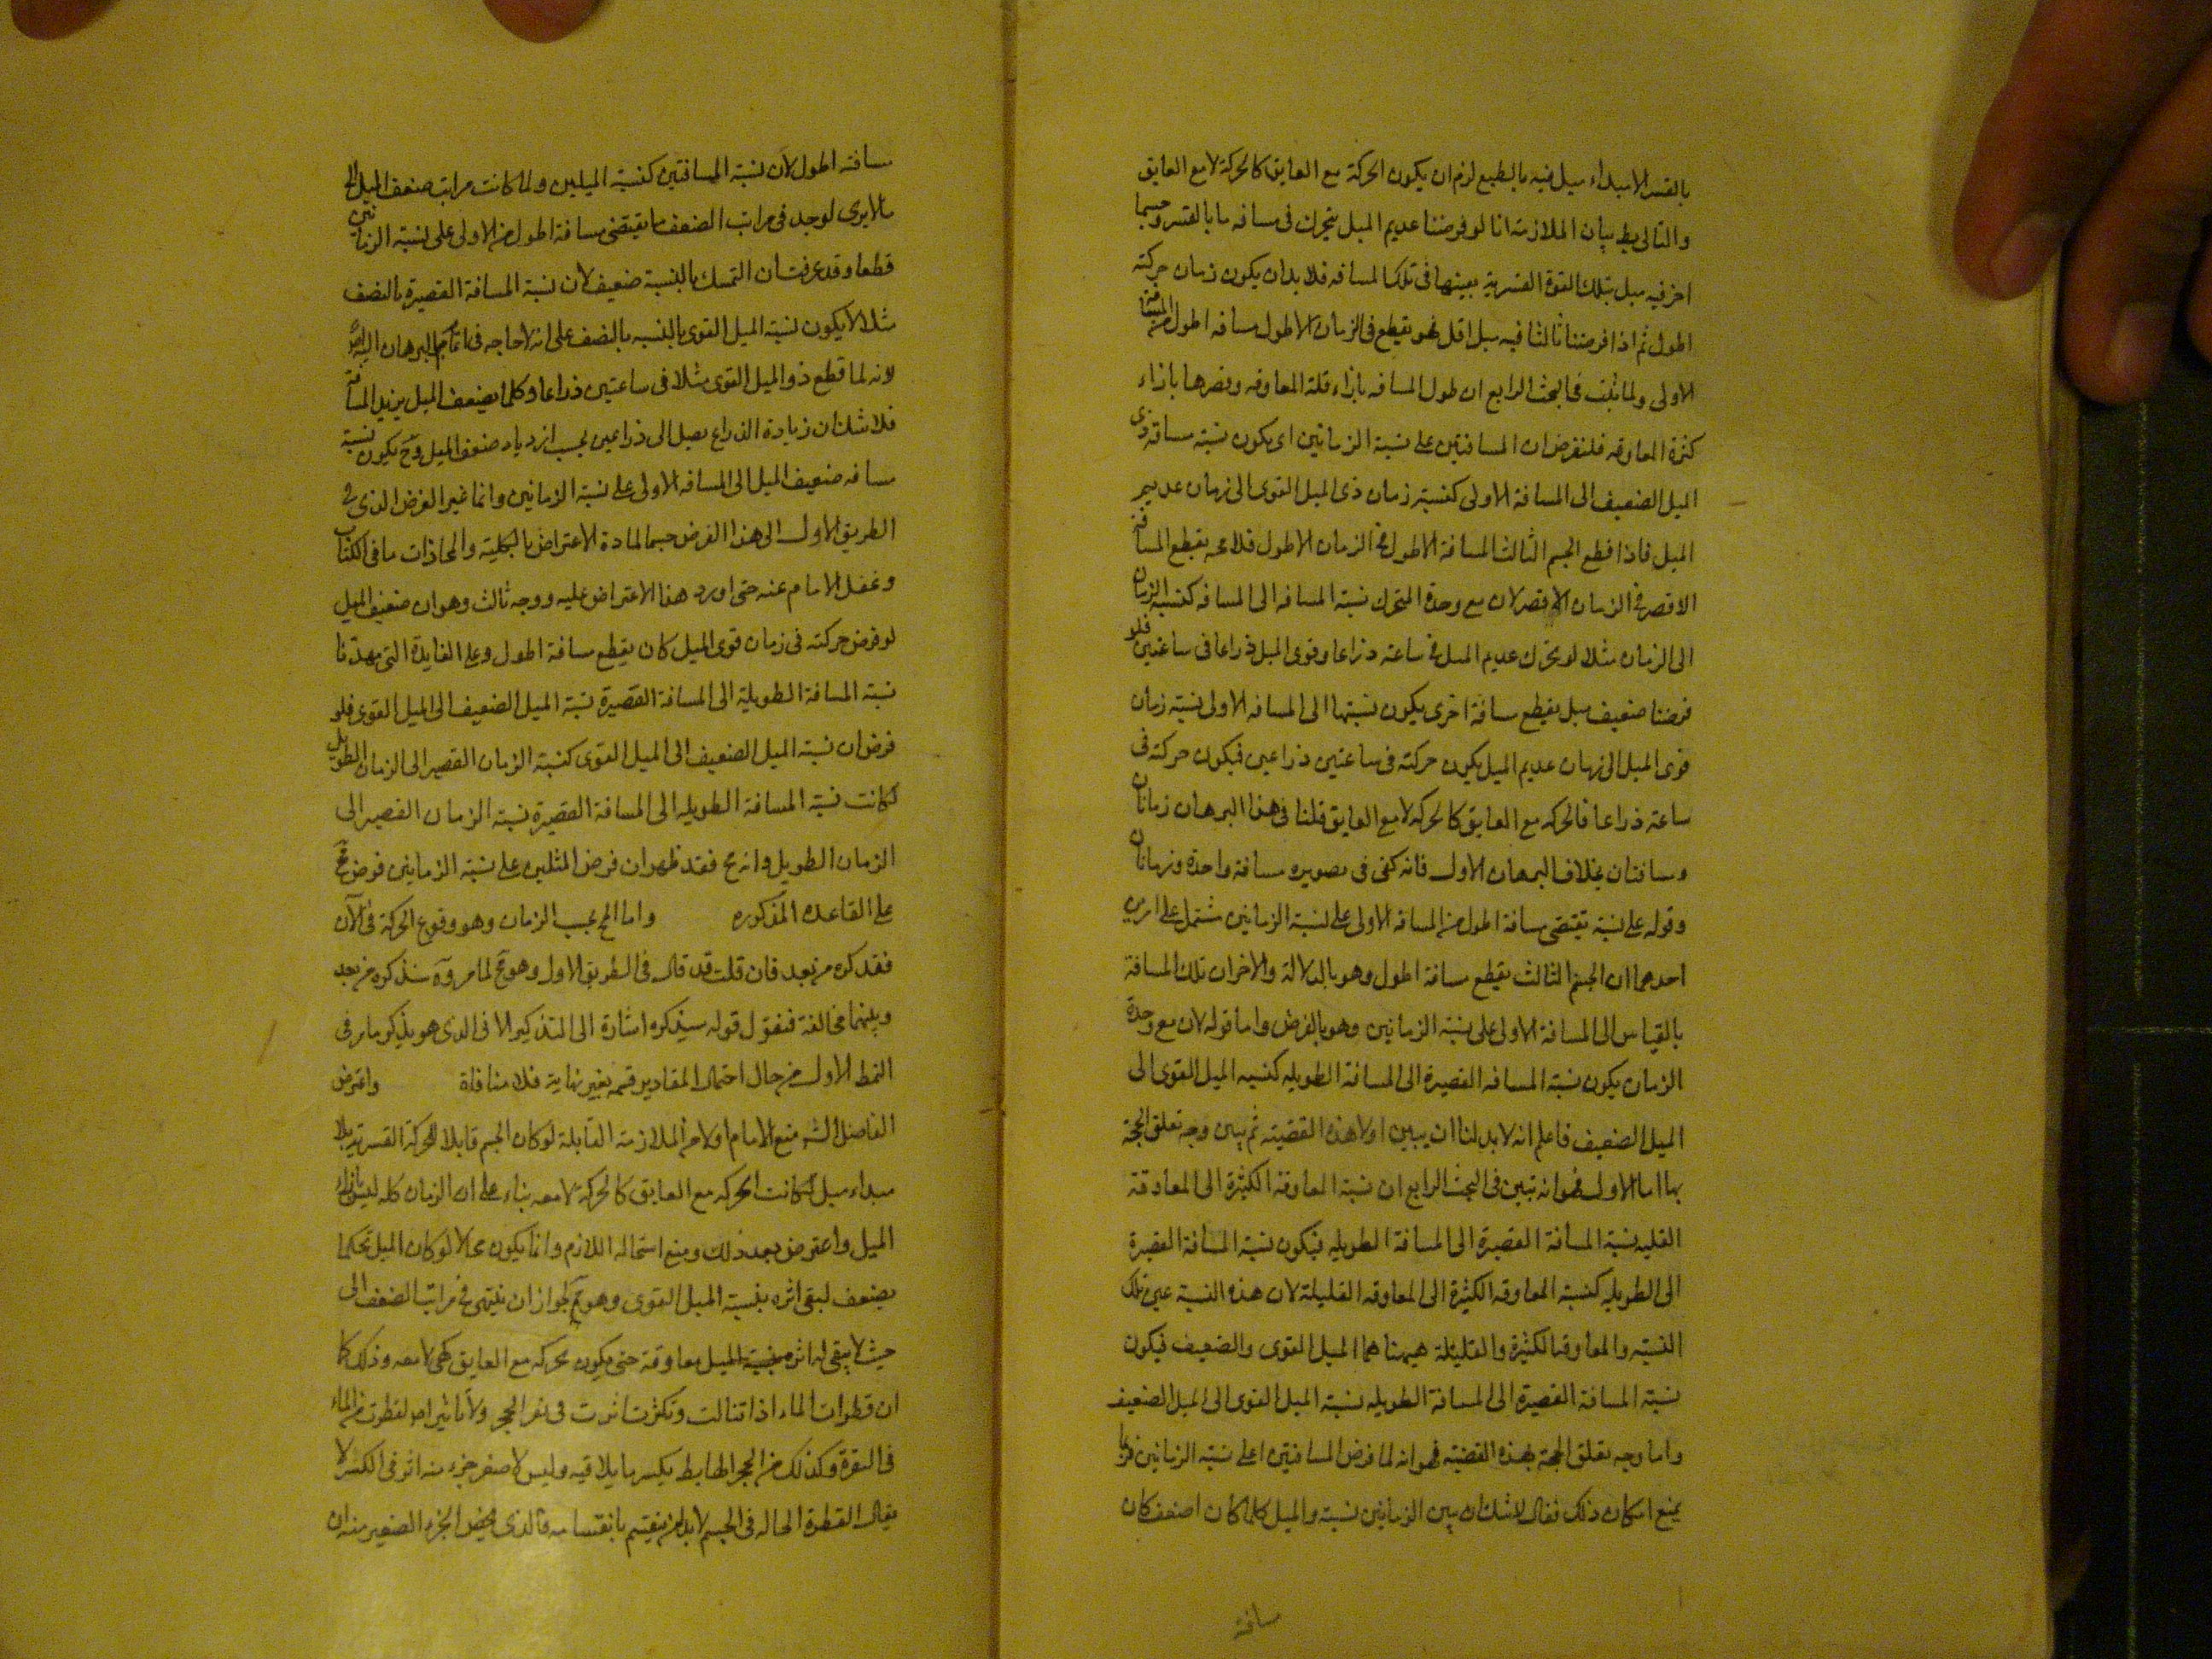 بالقسر لا مبداء ميل فيه بالطبع لزم ان يكون الحركة مع العايق كالحركة لا مع العايق
والتالى بط بيان الملازمة انا لو فرضنا عديم الميل يتحرك فى مسافه ما بالقسر وجسما
اخر فيه ميل بتلك القوة القسرية بعينها فى تلك المسافه فلا بد ان يكون زمان حركته
اطول ثم اذا فرضنا ثالثا فيه ميل اقل فهو يقطع فى الزمان الاطول مسافه اطول من المسافة
الاولى ولما ثبت فى البحث الرابع ان طول المسافه بازاء قلة المعاوقه وقصرها بازاء
كثرة المعاوقه فلنفرض ان المسافتين على نسبة الزمانين اى يكون نسبة مسافة ذى
الميل الضعيف الى المسافة الاولى كنسبة زمان ذى الميل القوى الى زمان عديم
الميل فاذا قطع الجسم الثالث المسافة الاطول فى الزمان الاطول فلا محه يقطع المسافة
الاقصر فى الزمان الاقصر لان مع وحدة المتحرك نسبة المسافه الى المسافه كنسبة الزمان
الى الزمان مثلا لو تحرك عديم الميل فى ساعة ذراعا وقوى الميل ذراعا فى ساعتين فلو
فرضنا ضعيف ميل يقطع مسافة اخرى يكون نسبتها الى المسافه الاولى نسبة زمان
قوى الميل الى زمان عديم الميل يكون حركته فى ساعتين ذراعين فيكون حركته فى
ساعة ذراعا فالحركه مع العايق كالحركه لا مع العايق قلنا فى هذا البرهان زمانان
ومسافتان بخلاف البرهان الاول فانه كفى فى تصويره مسافة واحدة وزمانان
وقوله على نسبة تقتضى مسافة اطول من المسافه الاولى على نسبة الزمانين مشتمل على امرين
احدهما ان الجسم الثالث يقطع مسافة اطول وهو بالدلالة والاخر ان تلك المسافة
بالقياس الى المسافة الاولى على نسبة الزمانين وهو بالفرض واما قوله لان مع وحدة
الزمان يكون نسبة المسافه القصيرة الى المسافة الطويله كنسبه الميل القوى الى
الميل الضعيف فاعلم انه لا بد لنا ان يبين اولا هذه القضيته ثم يبين وجه تعلق الحجة
بها اما الاول فهو انه تبين فى البحث الرابع ان نسبة المعاوقة الكثيرة الى المعاوقة
القليه نسبة المسافة القصيرة الى المسافة الطويله فيكون نسبة المسافة القصيرة
الى الطويله كنسبة المعاوقه الكثيرة الى المعاوقه القليلة لان هذه النسبة عين تلك
النسبة والمعاوقه الكثيرة والقليلة هيهنا هما الميل القوى والضعيف فيكون
نسبة المسافة القصيرة الى المسافة الطويله نسبة الميل القوى الى الميل الضعيف
واما وجه تعلق الحجة بهذه القضية فهو انه لما فرض المسافتين على نسبة الزمانين فربما
يمنع امكان ذلك فقال لا شك ان بين الزمانين نسبة والميل كلما كان اضعف كان
مسافة
مسافة اطول لان نسبة المسافتين كنسبة الميلين ولما كانت مراتب ضعف الميل الى
مالا يرى لوجد فى مراتب الضعف ما يقتضى مسافة اطول من الاولى على نسبة الزمانين
قطعا وقد عرفت ان التمسك بالنسبة ضعيف لان نسبة المسافة القصيرة بالنصف
مثلا لا يكون نسبة الميل القوى بالنسبه بالنصف على انه لا حاجه فى اتمام البرهان اليه
لانه لما قطع ذو الميل القوى مثلا فى ساعتين ذراعا وكلما يضعف الميل يزيد المسافة
فلا شك ان زيادة الذراع يصل الى ذراعين بحسب ازدياد ضعف الميل وح يكون نسبة
مسافه ضعيف الميل الى المسافه الاولى على نسبة الزمانين وانما غير الفرض الذى فى
الطريق الاول الى هذا الفرض حسما لمادة الاعتراض بالكلية والمحاذات ما فى الكتاب
وغفل الامام عنه حتى اورد هذا الاعتراض عليه ووجه ثالث وهو ان ضعيف الميل
لو فرض حركته فى زمان قوى الميل كان يقطع مسافة اطول وعلى الفايدة التى مهدنا
نسبة المسافة الطويلة الى المسافة القصيرة نسبة الميل الضعيف الى الميل القوى فلو
فرض ان نسبة الميل الضعيف الى الميل القوى كنسبة الزمان القصير الى الزمان الطويل
كانت نسبة المسافة الطويله الى المسافة القصيرة نسبة الزمان القصير الى
الزمان الطويل وانه مح فقد ظهر ان فرض المثلين على نسبة الزمانين فرض مح
على القاعده المذكوره واما المح بحسب الزمان وهو وقوع الحركة فى الآن
فقد كره من بعد فان قلت قد قال فى الطريق الاول وهو مح لما مر وآه سنذكره من بعد
وبينهما مخالفة فنقول قوله سيذكره اشارة الى التذكير لا فى الذى هو يذكر ما مر فى
النمط الاول من حال احتمال المقادير قسمه بغير نهاية فلا منافاة واعترض
الفاضل الش منع الامام اولا من الملازمة القابلة لو كان الجسم قابلا للحركة القسرية بلا
مبداء ميل لكانت الحركه مع العايق كالحركة لا معه بناء على ان الزمان كله ليس بازاء
الميل واعترض بعد ذلك ومنع استحالة اللازم وانما يكون محالا لو كان الميل كلما
يضعف لبقى اثره بنسبة الميل القوى وهو مم لجواز ان ينتهى فى مراتب الضعف الى
حيث لا يبقى له اثر بنسبة الميل معاوقة حتى يكون حركه مع العايق كهى لا معه وذلك كما
ان قطرات الماء اذا تتالت وتكثرت اثرت فى نقر الحجر ولا تاثير لقطرة من الماء
فى النقرة وكذلك من الحجر الهابط يكسر ما يلاقيه وليس لاصغر جزء منه اثر فى الكسر لا
يقال القطرة الحاله فى الجسم لا بد ان ينقسم بانقسامه فالذى يخص الجزء الصغير منه ان